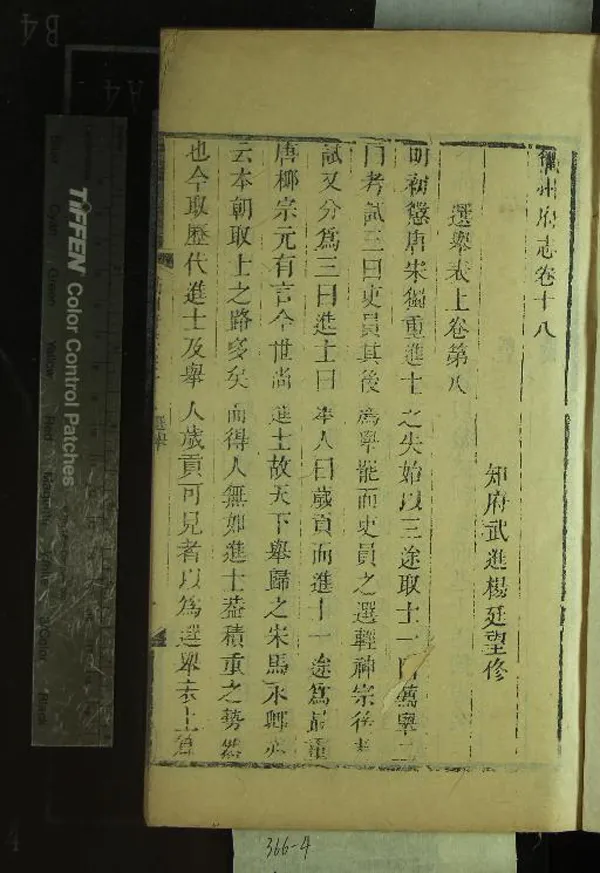 衢州府志卷十八
知府武進楊廷望修
選舉表上卷第八
明初懲唐宋獨重進士之失始以三途取士一曰薦舉二
曰考試三曰吏員其後薦舉罷而吏員之選輕神宗後考
試又分爲三曰進士曰舉人曰歲貢而進士一途爲最重
唐柳宗元有言今世尚進士故天下舉歸之宋馬永卿亦
云本朝取士之路多矣而得人無如進士蓋積重之勢然
也今取歷代進士及舉人歲貢可見者以爲選舉表上首
選舉
TIFFEN Color Control Patches
Cyan
Green
Yellow
Red
Black
B4
A4
366-4